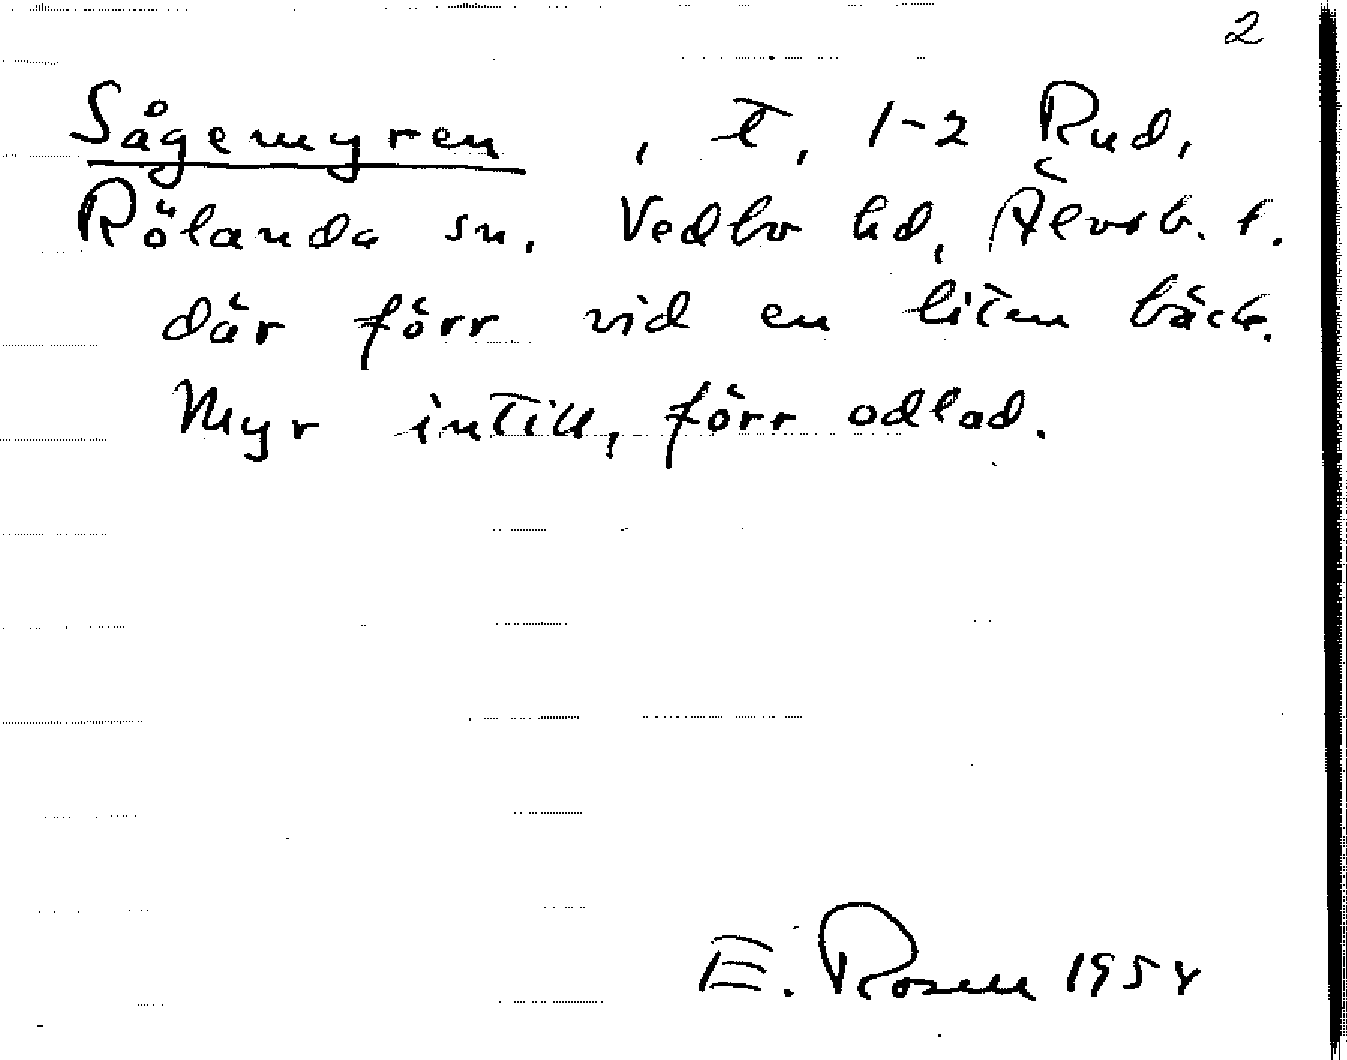 2
Sågemyren , t, 1-2 Rud,
Rölanda sn. Vedbo hd, Älvsb. l.
där förr vid en liten bäck.
Myr intill, förr odlad.
E. Rosell 1954